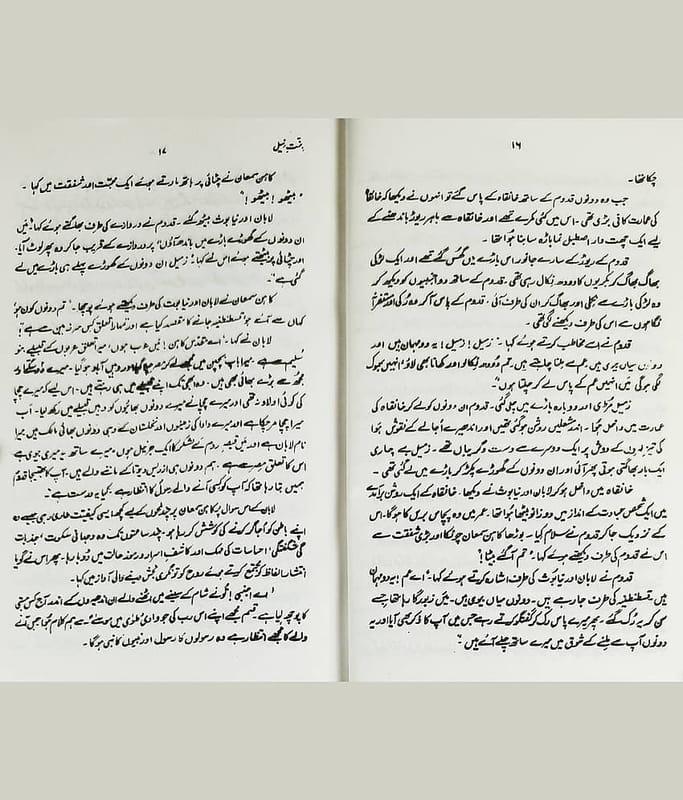 ۱۶
چکا تھا۔
جب وہ دونوں قدوم کے ساتھ خانقاہ کے پاس گئے تو انہوں نے دیکھا کہ خانقاہ
کی عمارت کافی بڑی تھی۔ اس میں کئی کمرے تھے اور خانقاہ سے باہر ریوڑ باندھنے کے
لیے ایک چھت دار اصطبل نما باڑہ سا بنا ہوا تھا۔
قدوم کے ریوڑ کے سارے جانور اس باڑے میں گھس گئے تھے اور ایک لڑکی
بھاگ بھاگ کر بکریوں کا دودھ نکال رہی تھی۔ قدوم کے ساتھ دو اجنبیوں کو دیکھ کر
وہ لڑکی باڑے سے نکلی اور بھاگ کر ان کی طرف آئی۔ قدوم کے پاس آ کر وہ رُکی اور استفہامیہ
نگاہوں سے اس کی طرف دیکھنے لگی تھی۔
قدوم نے اسے مخاطب کرتے ہوئے کہا۔ "زمیل! زمیل! یہ دو مہمان ہیں اور
دونوں میاں بیوی ہیں۔ یہ عم سے ملنا چاہتے ہیں۔ تم دودھ نکالو اور کھانا بھی لاؤ۔ انہیں بھوک
لگی ہوگی میں انہیں عم کے پاس لے کر جاتا ہوں"
زمیل مڑی اور دوبارہ باڑے میں چلی گئی۔ قدوم ان دونوں کو لے کر خانقاہ کی
عمارت میں داخل ہوا۔ اندر مشعلیں روشن ہو گئی تھیں اور اندھیرے اُجالے کے نقوش ہوا
کی تیز لہروں کے دوش پر ایک دوسرے سے دست و گریباں تھے۔ زمیل بے چاری
ایک بار بھاگتی ہوئی پھر آئی اور ان دونوں کے گھوڑے پکڑ کر باڑے میں لے گئی تھی۔
خانقاہ میں داخل ہو کر لابان اور نیابوث نے دیکھا۔ خانقاہ کے ایک روشن برآمدے
میں ایک شخص عبادت کے انداز میں دوزانو بیٹھا ہوا تھا۔ عمر میں وہ پچاس برس کا ہوگا۔ اس
کے نزدیک جا کر قدوم نے سلام کیا۔ بوڑھا کاہن سمعان چونکا اور بڑی شفقت سے
اس نے قدوم کی طرف دیکھتے ہوئے کہا۔ "تم آ گئے بیٹا!"
قدوم نے لابان اور نیابوث کی طرف اشارہ کرتے ہوئے کہا۔ "اے عم! یہ دو مہمان
ہیں۔ قسطنطنیہ کی طرف جا رہے ہیں۔ دونوں میاں بیوی ہیں۔ میں زبور گا رہا تھا جسے
سن کر یہ رُک گئے۔ پھر میرے پاس رُک کر گفتگو کرتے رہے جس میں آپ کا ذکر بھی آیا اور یہ
دونوں آپ سے ملنے کے شوق میں میرے ساتھ چلے آئے ہیں۔"
۱۷
کاہن سمعان نے چٹائی پر ہاتھ مارتے ہوئے ایک محبت اور شفقت میں کہا۔
"بیٹھو! بیٹھو!"
لابان اور نیابوث بیٹھ گئے۔ قدوم نے دروازے کی طرف بھاگتے ہوئے کہا! "میں
ان دونوں کے گھوڑے باڑے میں باندھ آؤں" پر دروازے کے قریب جا کر وہ پھر لوٹ آیا۔
اور چٹائی پر بیٹھتے ہوئے اس نے کہا! "زمیل ان دونوں کے گھوڑے پہلے ہی باڑے میں لے
گئی ہے"
کاہن سمعان نے لابان اور نیابوث کی طرف دیکھتے ہوئے پوچھا۔ "تم دونوں کون ہو؟
کہاں سے آئے ہو؟ قسطنطنیہ جانے کا مقصد کیا ہے اور تمہارا تعلق کس سرزمین سے ہے"؟
لابان نے کہا۔ "اے مقدس کاہن! میں عرب ہوں! میرا تعلق عربوں کے قبیلے بنو
سلیم سے ہے۔ میرا باپ بچپن میں مجھے لے کر مصر چلا گیا اور وہیں آباد ہو گیا۔ میرے
مجھ سے بڑے بھائی بھی ہیں۔ وہ ابھی تک اپنے قبیلے میں ہی رہتے ہیں۔ اس لیے کہ میرے چچا
کی کوئی اولاد نہ تھی اور میرے چچا نے میرے دونوں بھائیوں کو وہیں قبیلے میں رکھ لیا۔ اب
میرا چچا مر چکا ہے اور میرے دادا کی زمینوں اور نخلستان کے وہی دونوں بھائی مالک ہیں۔ میرا
نام لابان ہے اور میں قیصرِ روم کے لشکر کا ایک جرنیل ہوں۔ میرے ساتھ یہ میری بیوی ہے
اس کا تعلق مصر سے ہے۔ ہم دونوں ہی ادریسی دین کے ماننے والے ہیں۔ آپ کا بھتیجا قدوم
ہمیں بتا رہا تھا کہ آپ کو کسی آنے والے رسول کا انتظار ہے، کیا یہ درست ہے"
لابان کے اس سوال پر کاہن سمعان پر چند لمحوں کے لیے کچھ ایسی کیفیت طاری رہی جیسے وہ
اپنے باطن کو اُجاگر کرنے کی کوشش کر رہا ہو۔ چند ساعتوں تک وہ وجدانی سکوت، جذبات
کی شگفتگی، احساسات کی خنک اور کاشفِ اسرار و رموز حالت میں ڈوبا رہا۔ پھر اس نے گویا
انتشارِ الفاظ کو مجتمع کرتے ہوئے روح کو تونگری بخش دینے والی آواز میں کہا۔
"اے اجنبی! تُو نے شام کے سینے میں اٹھنے والے ان اندھیروں کے اندر آج کس ہستی
کا پوچھ لیا ہے۔ قسم مجھے اپنے اس رب کی جو وادیٔ طوٰی میں موسٰیؑ سے ہم کلام ہوا جس آنے
والے کا مجھے انتظار ہے وہ رسولوں کا رسول اور نبیوں کا نبی ہوگا۔